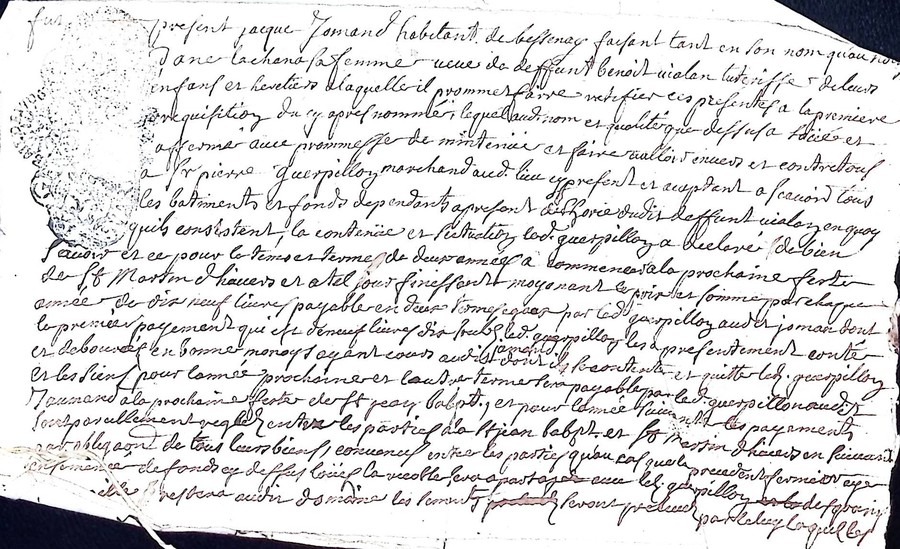 fut present jacque Jomand habitant de bessenay faisant tant en son nom quau nom
dane lachana sa femme veuve de deffunt benoit vialon tuterisse de leurs
enfans et heretiers a laquelle il prommet faire ratifier ces presentes a la premiere
requisition du cy apres nommé, lequel audt nom et qualité que dessus a loüé et
affermé avec prommesse de maintenir et faire valloir envers et contre tous
a Sr pierre guerpillon marchand aud. lieu cy present et aceptant a scavoir tous
les batiments et fonds dependants a present de lhorie dudit deffunt vialon, en quoy
quils consistent, la contenüe et situation led. guerpillon a declaré de bien
scavoir et ce pour le tems et terme de deux années a commencer a la prochaine feste
de St Martin dhivers et a tel jour finissant moyenant le prix et somme par chaque
année de dix neuf livres payable en deux termes par led. guerpillon aud. jomand dont
le premier payement qui est de neuf livres dix sols led. guerpillon les a presentement conté
et deboursés en bonne monoye ayant cours aud. jomand dont il se contente et quitte led. guerpillon
et les siens pour lannée prochaine et lautre terme sera payable par led. guerpillon audit
Jaumand a la prochaine feste de St jean babpt., et pour lannée suivante les payements
sont pareillement reglez entre les parties a la St jean babpt. et St Martin dhivers en suivant
par obligaon de tous leurs biens, convenus entre les parties quau cas que le precedent fermier aye
ensemencé de fonds cy dessus loüés la recolte sera apartagé avec led. guerpillon
restera audit domaine les serments seront prelevés par laquelle